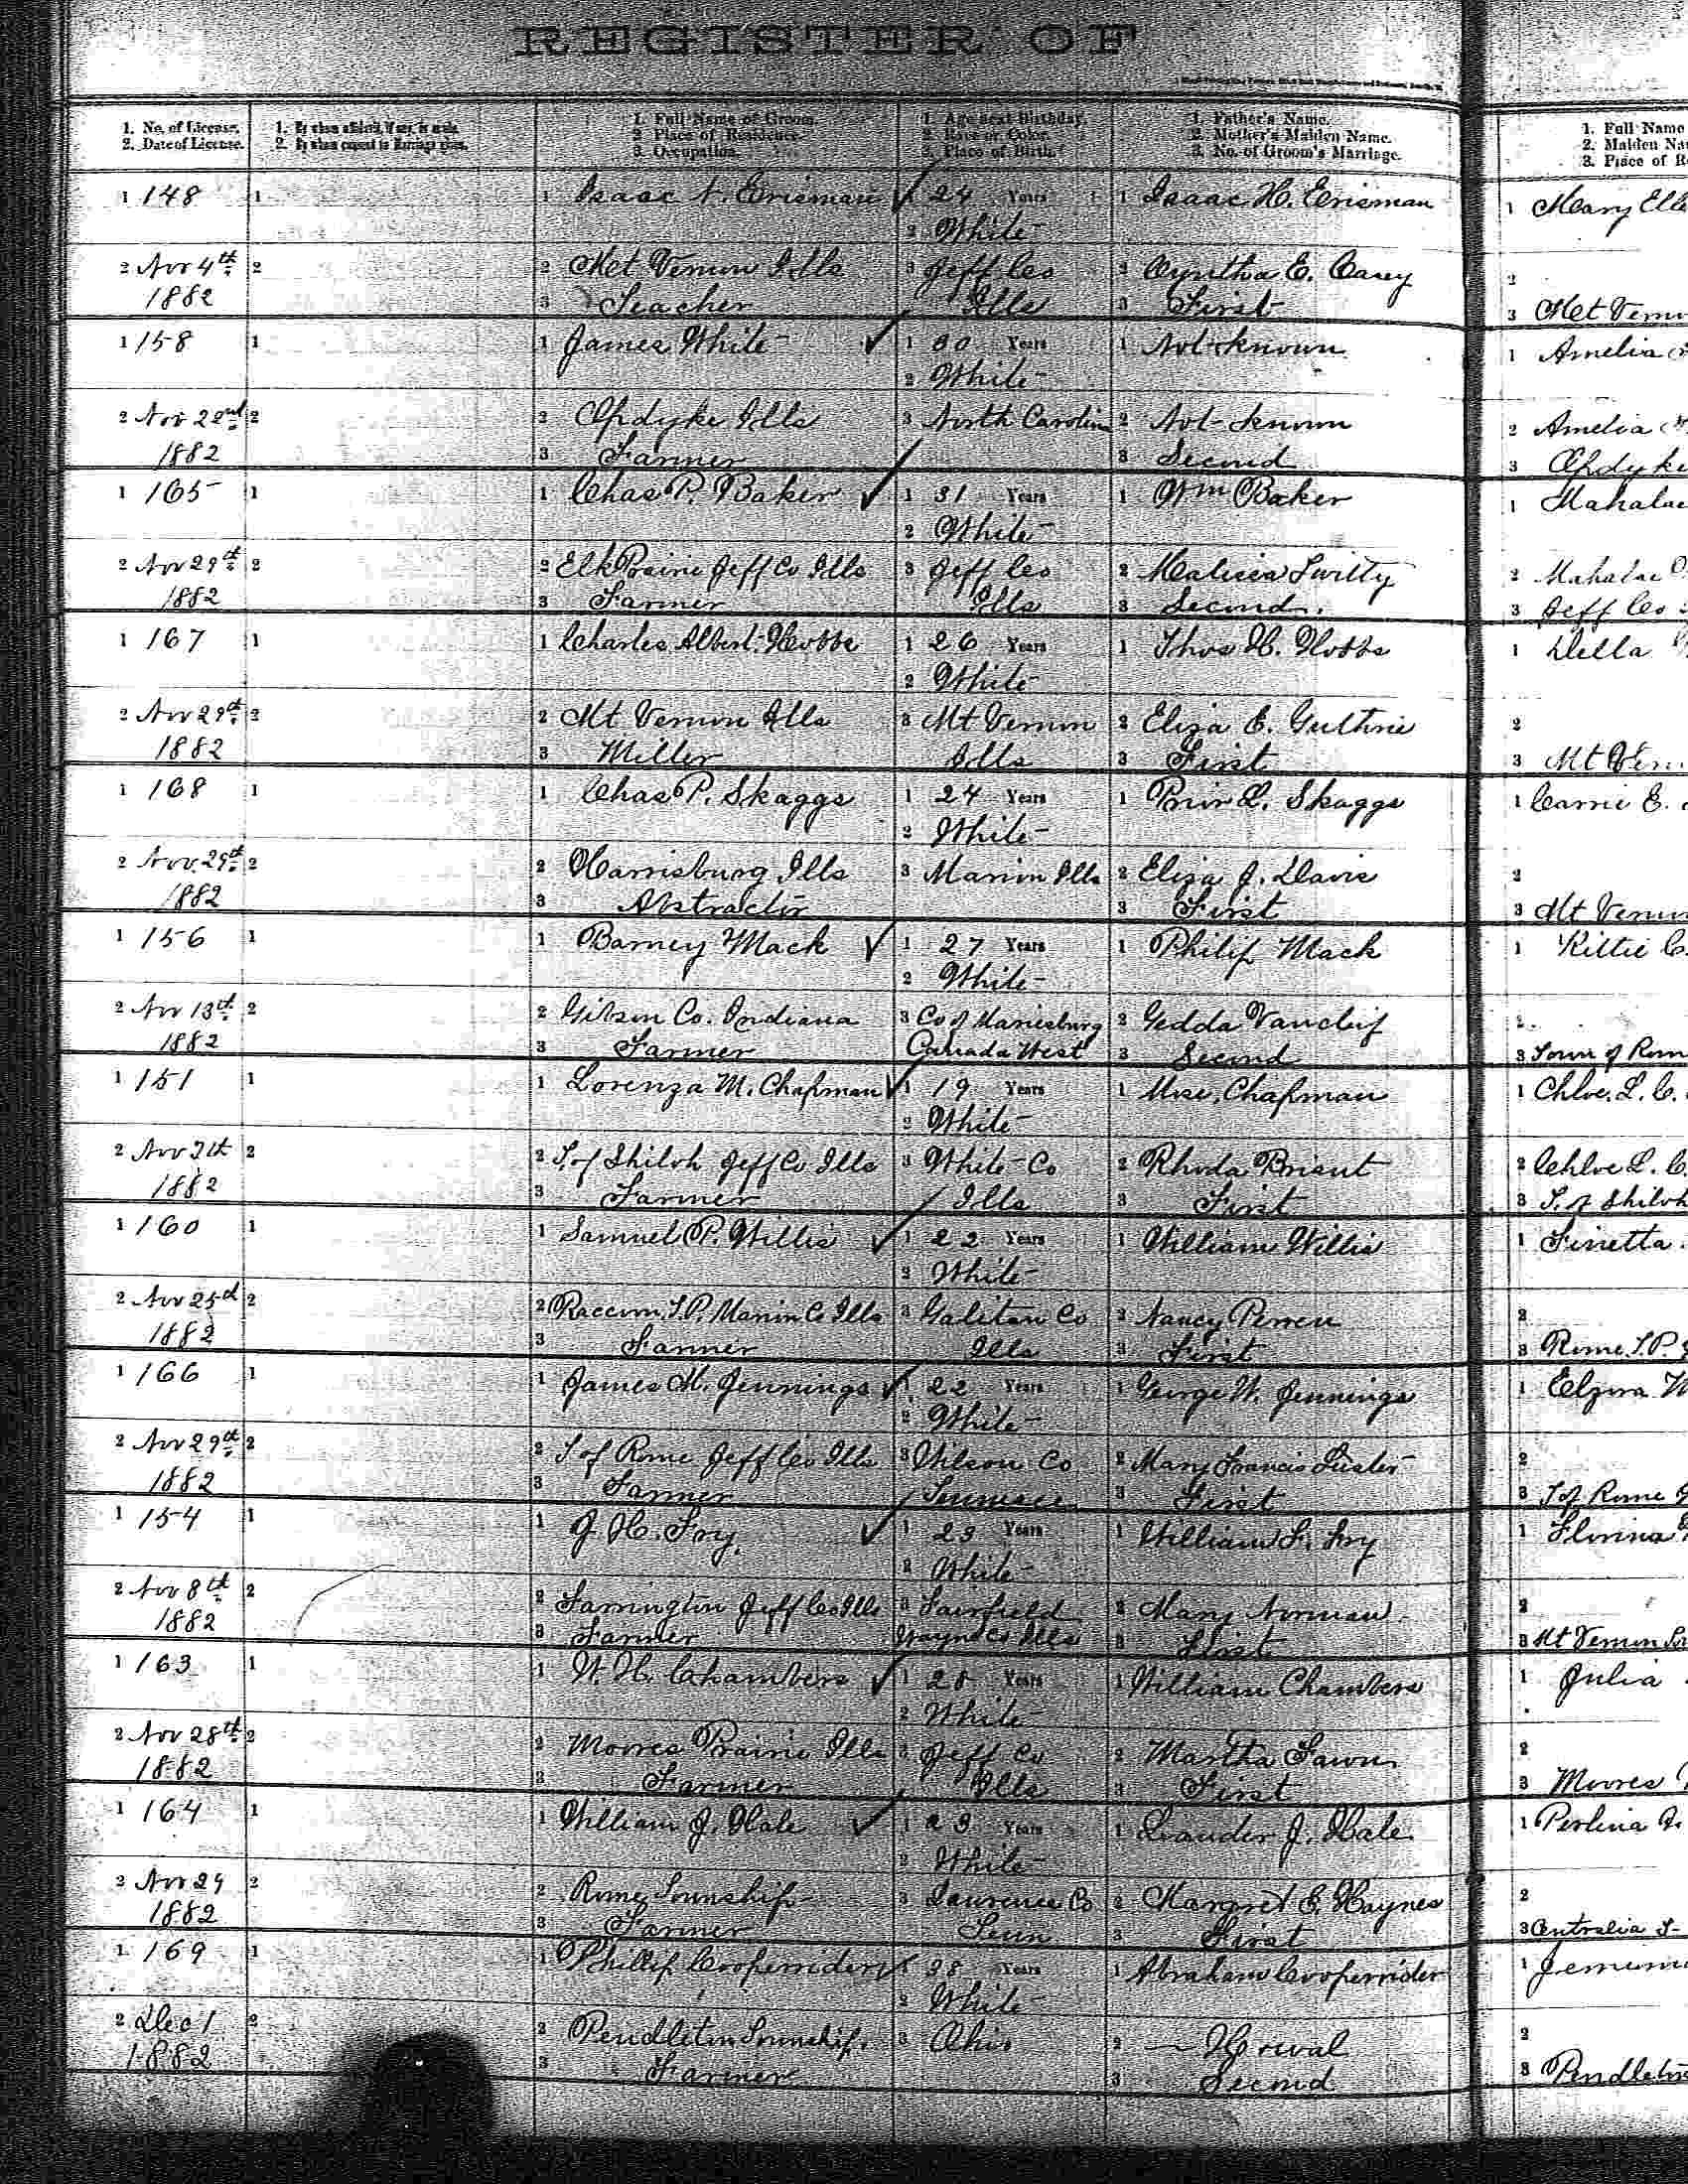 REGISTER OF
1. No. of License.
2. Date of License.
1. Full Name of Groom.
2. Place of Residence.
3. Occupation.
1. Age next Birthday.
2. Race or Color.
3. Place of Birth.
1. Father's Name.
2. Mother's Maiden Name.
3. No. of Groom's Marriage.
1. Full Name
2. Maiden Na
3. Place of R
1 148 1 1 Isaac N. Erisman 1 24 Years 1 Isaac H. Erisman 1 Mary Elle
2 White
2 Nov 4th 2 2 Met Vernon Ills 3 Jeff Co 2 Cyntha E. Casey 2
1882 3 Teacher Ills 3 First 3 Met Vernon
1 158 1 1 James White 1 60 Years 1 Not known 1 Amelia
2 White
2 Nov 22nd 2 2 Opdyke Ills 3 North Carolina 2 Not known 2 Amelia
1882 3 Farmer 3 Second 3 Opdyke
1 165 1 1 Chas P. Baker 1 31 Years 1 Wm Baker 1 Mahalae
2 White
2 Nov 29th 2 2 Elk Prairie Jeff Co Ills 3 Jeff Co 2 Malissa 2 Mahalae
1882 3 Farmer Ills 3 Second. 3 Jeff Co
1 167 1 1 Charles Albert Hobbs 1 26 Years 1 Thos H. Hobbs 1 Della
2 White
2 Nov 29th 2 2 Mt Vernon Ills 3 Mt Vernon 2 Eliza E. Guthrie 2
1882 3 Miller Ills 3 First 3 Mt Ver
1 168 1 1 Chas P. Skaggs 1 24 Years 1 Prior L. Skaggs 1 Carrie E.
2 White
2 Nov. 29th 2 2 Harrisburg Ills 3 Marion Ills 2 Eliza J. Davis 2
1882 3 Abstractor 3 First 3 Mt Vernon
1 156 1 1 Barney Mack 1 27 Years 1 Philip Mack 1 Kittie C.
2 White
2 Nov 13th 2 2 Gibson Co. Indiana 3 Co of Harriesburg 2 Gedda Vanclif 2
1882 3 Farmer Canada West 3 Second 3 Town of Rom
1 151 1 1 Lorenza M. Chapman 1 19 Years 1 Chapman 1 Chloe. L. C.
2 White
2 Nov 7th 2 2 T. of Shiloh Jeff Co Ills 3 White Co 2 Rhoda Briant 2 Chloe L. C.
1882 3 Farmer Ills 3 First 3 T. of Shiloh
1 160 1 1 Samuel P. Willis 1 22 Years 1 William Willis 1 Finetta
2 White
2 Nov 25d 2 2 Raccoon T.P. Marion Co Ills 3 Galiton Co 2 Nancy Perren 2
1882 3 Farmer Ills 3 First 3 Rome T.P
1 166 1 1 James M. Jennings 1 22 Years 1 George W. Jennings 1 Elzora
2 White
2 Nov 29th 2 2 T of Rome Jeff Co Ills 3 Wilson Co 2 Mary Francis 2
1882 3 Farmer Tennessee 3 First 3 T of Rome
1 154 1 1 J. H. Fry. 1 23 Years 1 William F. Fry 1 Florina
2 White
2 Nov 8th 2 2 Farrington Jeff Co Ills 3 Fairfield 2 Mary Norman 2
1882 3 Farmer Wayne Co Ills 3 First 3 Mt Vernon
1 163 1 1 W. H. Chambers 1 28 Years 1 William Chambers 1 Julia
2 White
2 Nov 28th 2 2 Moores Prairie Ills 3 Jeff Co 2 Martha Fawn 2
1882 3 Farmer Ills 3 First 3 Moores
1 164 1 1 William J. Hale 1 23 Years 1 Leander J. Hale 1 Perlina A.
2 White
2 Nov 29 2 2 Rome Township 3 Lawrence Co 2 Margret E. Haynes 2
1882 3 Farmer Tenn 3 First 3 Centralia T
1 169 1 1 Phillip Cooperrider 1 38 Years 1 Abraham Cooperrider 1 Jemima
2 White
2 Dec 1 2 2 Pendleton Township. 3 Ohio 2 — Horval 2
1882 3 Farmer 3 Second 3 Pendleton